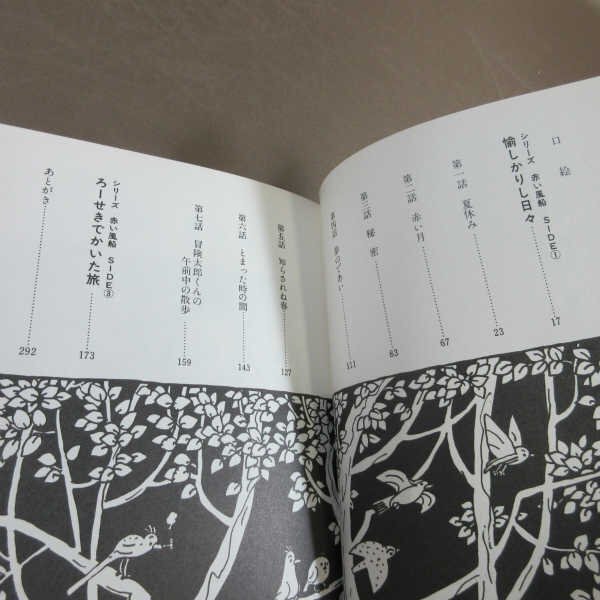 口絵
シリーズ 赤い風船 SIDE①
愉しかりし日々 17
第一話 夏休み 23
第二話 赤い月 67
第三話 秘密 83
第四話 111
第五話 知らされぬ春 127
第六話 とまった時の間 143
第七話 冒険太郎くんの
午前中の散歩 159
シリーズ 赤い風船 SIDE③
ろーせきでかいた旅 173
あとがき 292